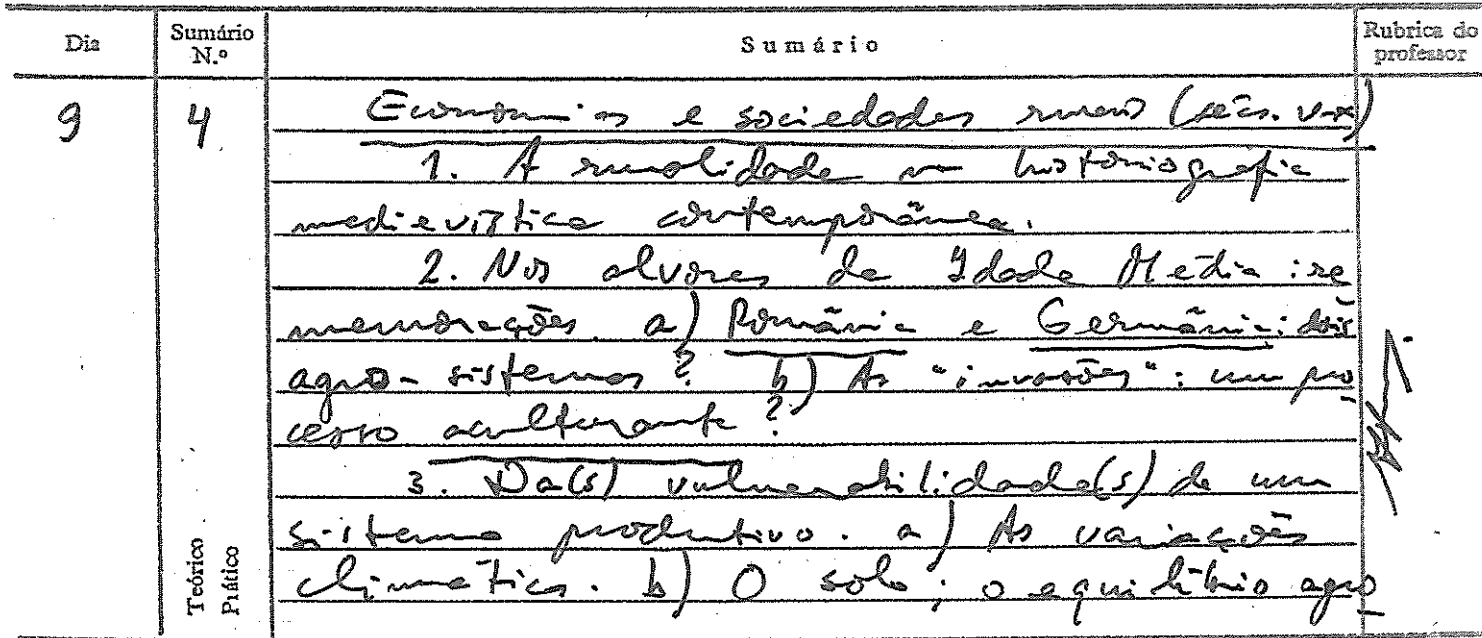 Dia
Sumário N.º
Sumário
Rubrica do professor
9
4
Economias e sociedades rurais (sécs. V-X)
1. A ruralidade na historiografia
medievística contemporânea.
2. Nos alvores da Idade Média: re
memorações. a) Români­a e Germânia: dois
agro-sistemas? b) As "invasões": um pro
cesso aculturante?
3. Da(s) vulnerabilidade(s) de um
sistema produtivo. a) As variações
climáticas. b) O solo; o equilíbrio agro
Teórico
Prático